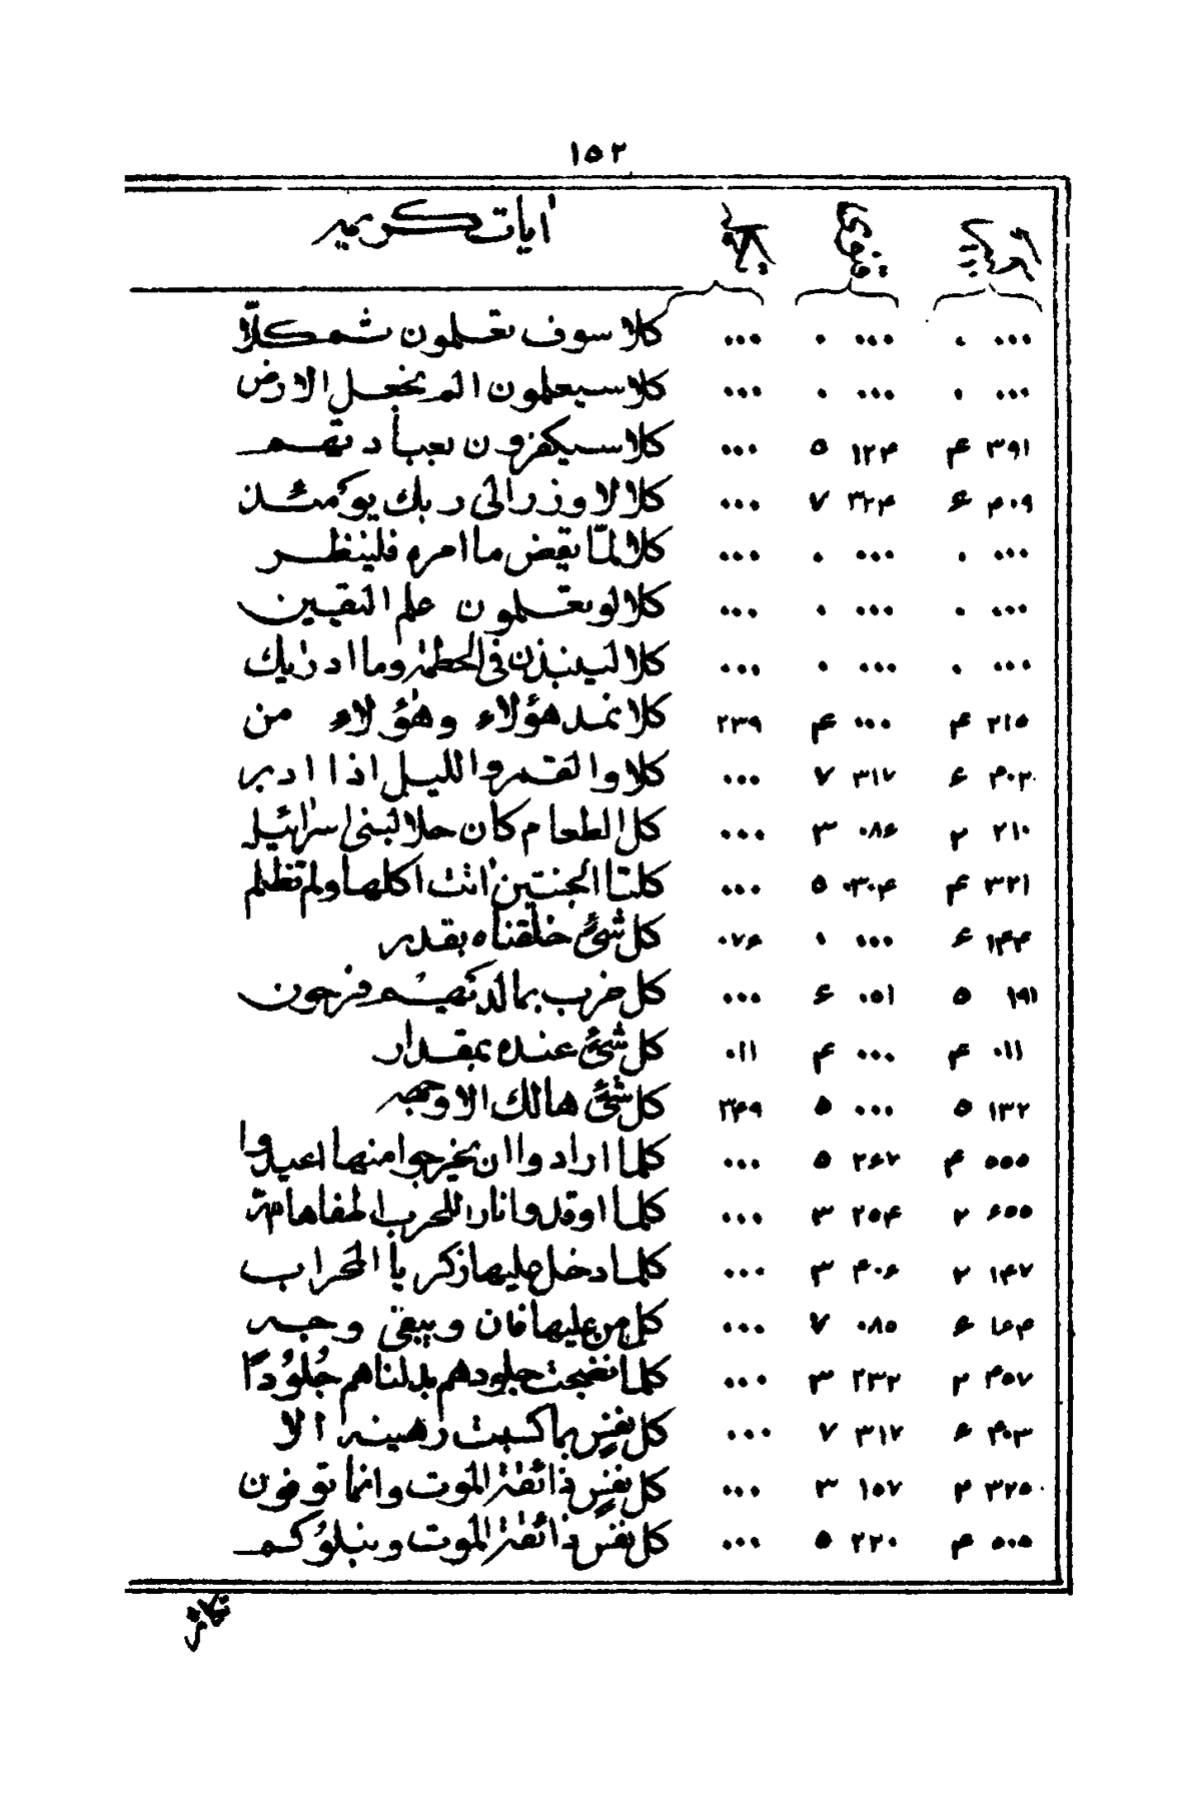 ١٥٢
اٰيات كريمه
٠٠٠ ٠ ٠٠٠ ٠ ٠٠٠ كلا سوف تعلمون ثم كلّا
٠٠٠ ٠ ٠٠٠ ٠ ٠٠٠ كلا سيعلمون الم نجعل الارض
٣٩١ ۴ ١٢۴ ٥ ٠٠٠ كلا سيكفرون بعبادتهم
۴٠٩ ۶ ٣٢۴ ٧ ٠٠٠ كلا لا وزر الى ربك يومئذ
٠٠٠ ٠ ٠٠٠ ٠ ٠٠٠ كلا لمّا يقض ما امره فلينظر
٠٠٠ ٠ ٠٠٠ ٠ ٠٠٠ كلا لو تعلمون علم اليقين
٠٠٠ ٠ ٠٠٠ ٠ ٠٠٠ كلا لينبذن فى الحطمة وما ادرٰيك
٢١٥ ۴ ٠٠٠ ۴ ٢٣٩ كلا نمد هؤلاء وهٰؤلاء من
۴٠٣ ۶ ٣١٧ ٧ ٠٠٠ كلا والقمر والليل اذا ادبر
٢١٠ ٢ ٠٨۶ ٣ ٠٠٠ كل الطعام كان حلا لبنى اسرٰائيل
٣٢١ ۴ ٣٠۴ ٥ ٠٠٠ كلتا الجنتين اٰتت اكلها ولم تظلم
١۴۴ ۶ ٠٠٠ ٠ ٠٧۶ كل شئ خلقناه بقدر
١٩١ ٥ ٠٥١ ۶ ٠٠٠ كل حزب بما لديهم فرحون
٠١١ ۴ ٠٠٠ ۴ ٠١١ كل شئ عنده بمقدار
١٣٢ ٥ ٠٠٠ ٥ ٣۴٩ كل شئ هالك الا وجهه
٥٥٥ ۴ ٢۶٧ ٥ ٠٠٠ كلما ارادوا ان يخرجوا منها اعيدوا
۶٥٥ ٢ ٢٥۴ ٣ ٠٠٠ كلما اوقدوا نارا للحرب اطفاها
١۴٧ ٢ ۴٠۶ ٣ ٠٠٠ كلما دخل عليها زكريا المحراب
١۶۴ ۶ ٠٨٥ ٧ ٠٠٠ كل من عليها فان ويبقى وجه
۴٥٧ ٢ ٢٣٢ ٣ ٠٠٠ كلما نضجت جلودهم بدلناهم جُلُودًا
۴٠٣ ۶ ٣١٧ ٧ ٠٠٠ كل نفسٍ بما كسبت رهينه الا
٣٢٥ ٢ ١٥٧ ٣ ٠٠٠ كل نفسٍ ذائقة الموت وانما توفون
٥٠٥ ۴ ٢٢٠ ٥ ٠٠٠ كل نفس ذائقة الموت ونبلوكم